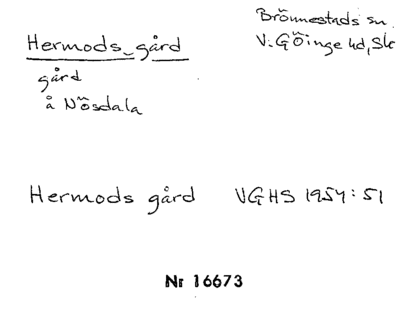 Hermods gård
Brönnestads sn.
V. Göinge hd, Sk
gård
å Nösdala
Hermods gård VGHS 1954:51
Nr 16673